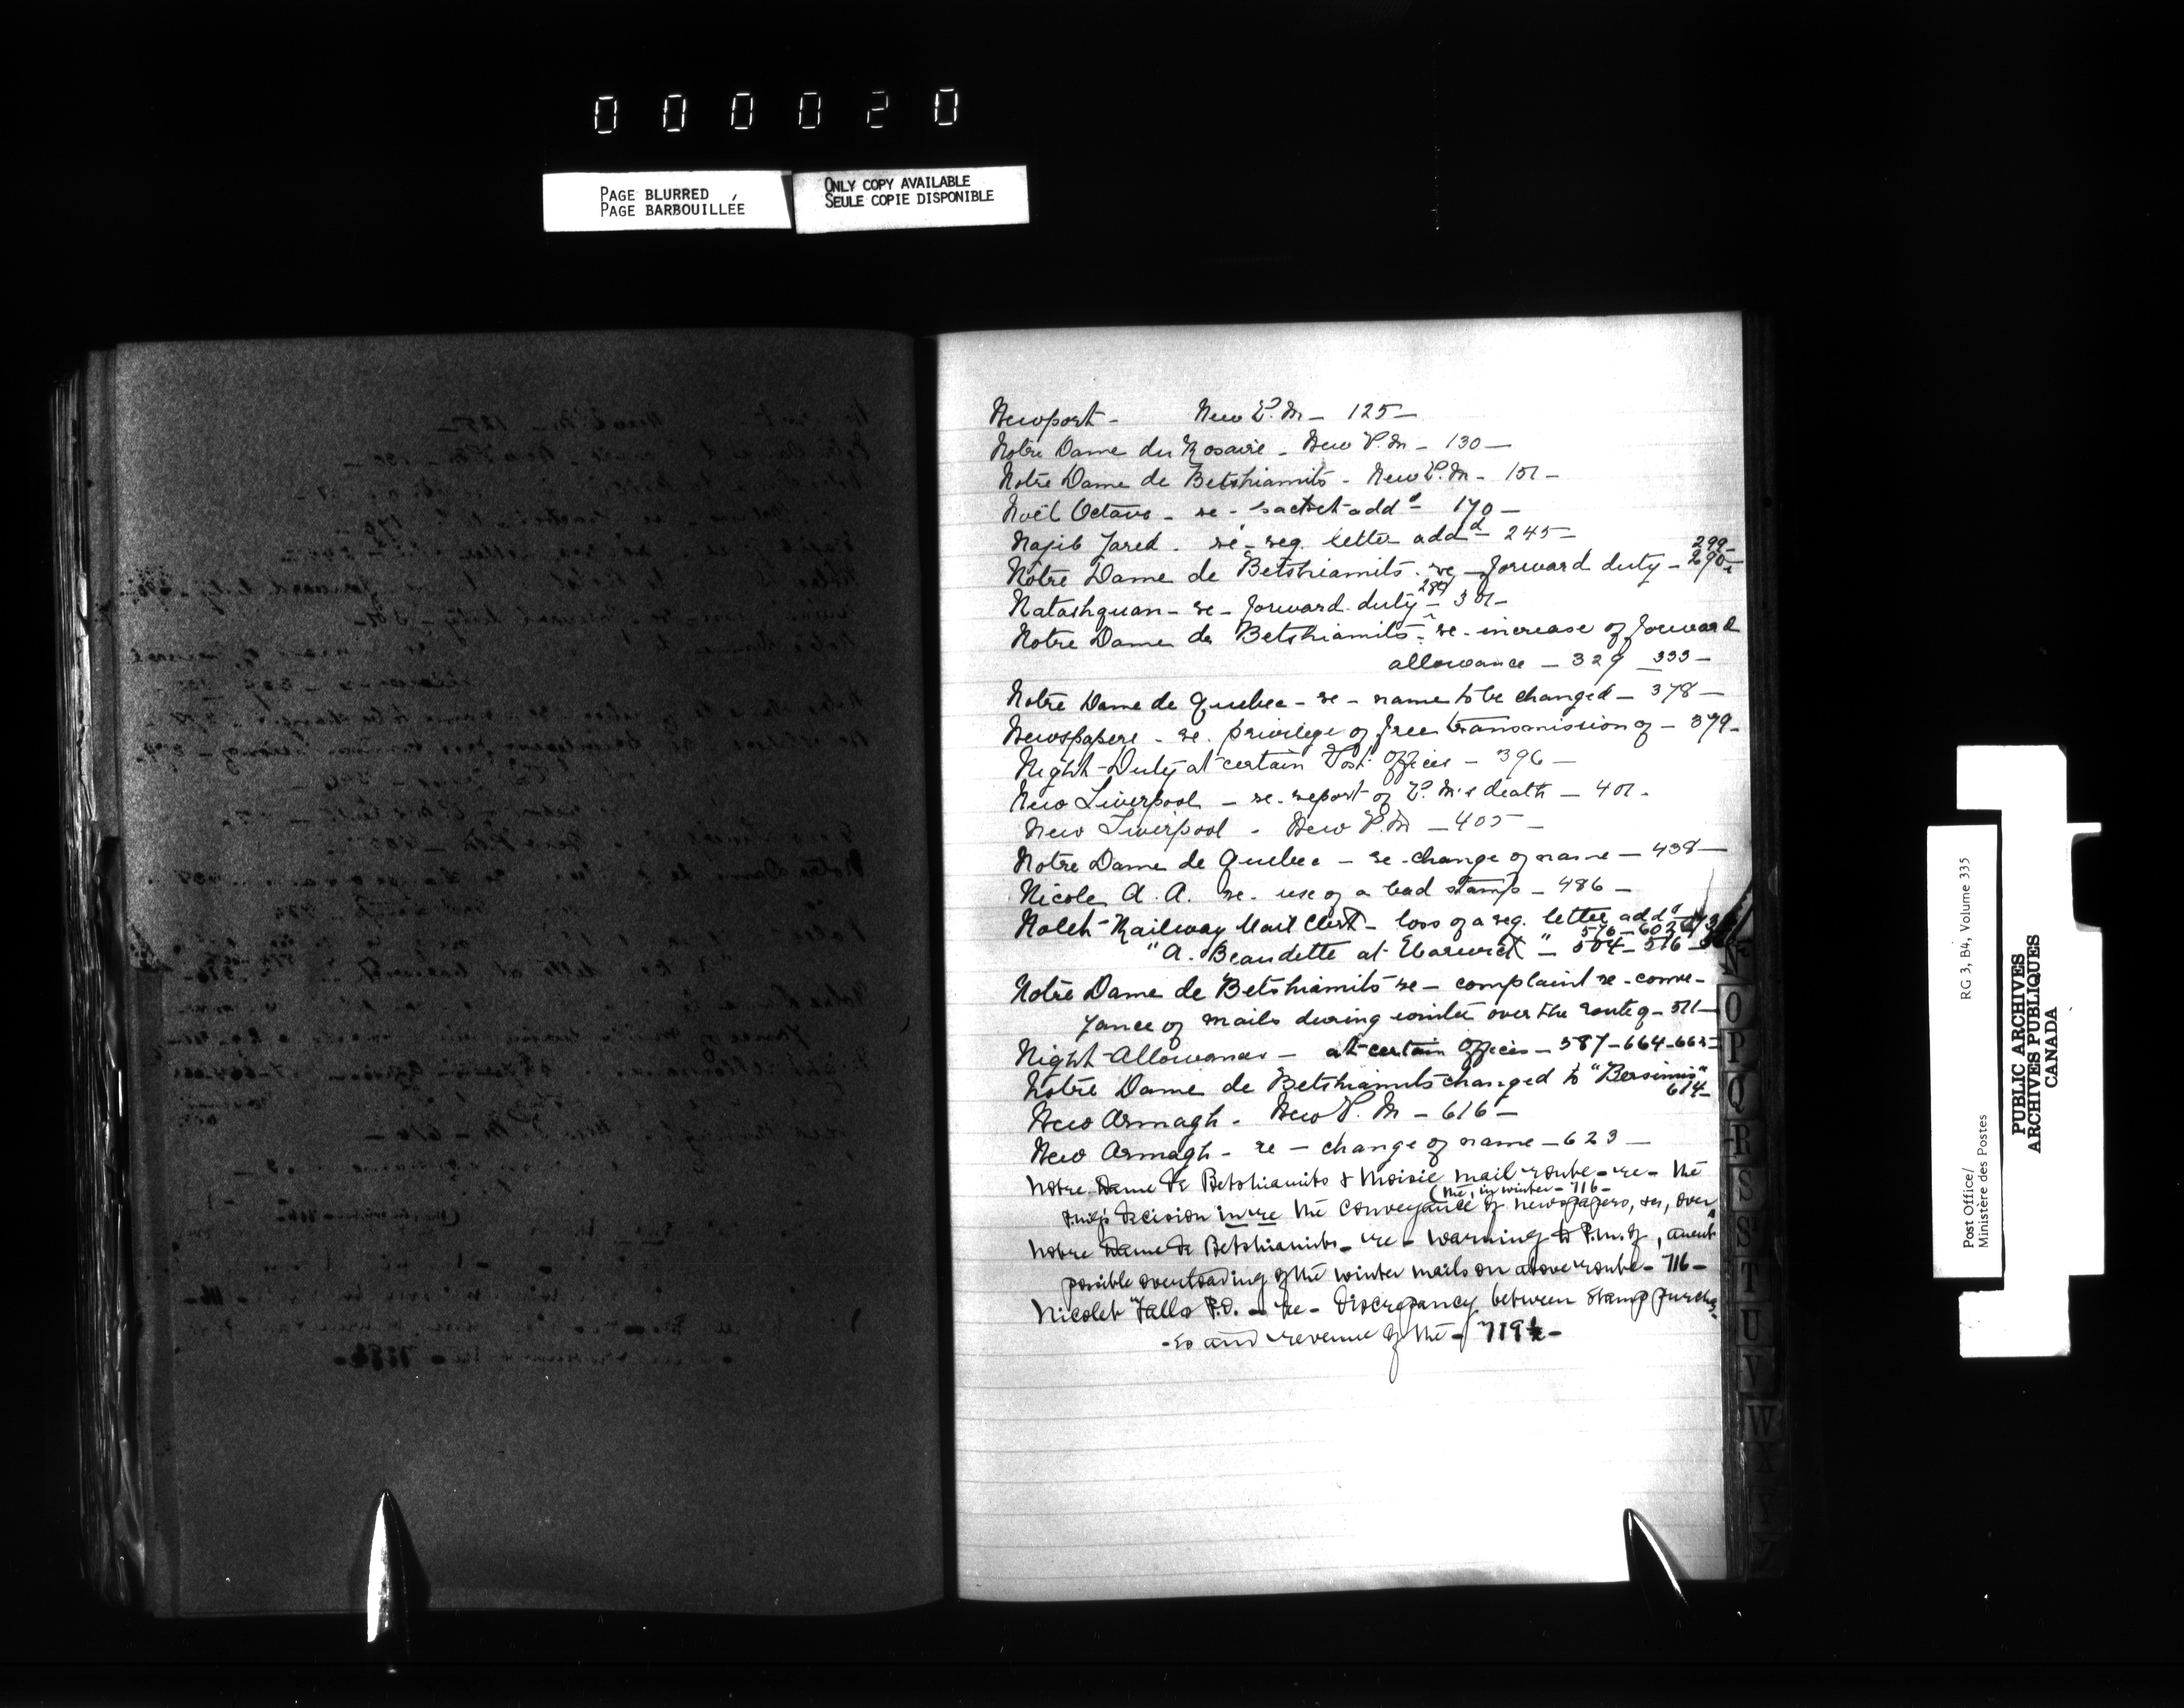 000020
PAGE BLURRED
PAGE BARBOUILLÉE
ONLY COPY AVAILABLE
SEULE COPIE DISPONIBLE
Newport - New P.M - 125 -
Notre Dame du Rosaire - New P.M - 130 -
Notre Dame de Betshiamits - New P.M - 151 -
Noël Octave - re - add^d - 170 -
Najib Jared - re - reg. letter add^d - 245 -
299-
Notre Dame de Betshiamits - re - forward duty - 290-
289
Natashquan - re - forward duty - 301 -
Notre Dame de Betshiamits - re - increase of forward
allowance - 329 - 333 -
Notre Dame de Quebec - re - name to be changed - 378 -
Newspapers - re. privilege of free transmission of - 379 -
Night-Duty at certain Post Offices - 396 -
New Liverpool - re. report of P.M's death - 401 -
New Liverpool - New P.M - 405 -
Notre Dame de Quebec - re - change of name - 438 -
Nicole A. A. re - use of a bad stamp - 486 -
Railway Mail Clerk - loss of a reg. letter add^d
576 - 602
" A. Beaudette at Warwick " - 504 - 516 -
Notre Dame de Betshiamits re - complaint re - conve-
yance of mails during winter over the route of - 511 -
Night-Allowance - at certain Offices - 587 - 664 - 665 -
Notre Dame de Betshiamits changed to "Bersimis"
614 -
New Armagh - New P.M - 616 -
New Armagh - re - change of name - 623 -
Notre Dame de Betshiamits & Moisie mail route - re - the
(the, in winter - 716 -
decision in re the conveyance of newspapers, &c, over
Notre Dame de Betshiamits - re - warning to P.M. of, anent
possible overloading of the winter mails on above route - 716 -
Nicolet Falls P.O. - re - discrepancy between stamp purcha-
-es and revenue of the - 719½ -
N
O
P
Q
R
S
St
T
U
V
W
X
Y
Z
Post Office/
Ministère des Postes
RG 3, B4, Volume 335
PUBLIC ARCHIVES
ARCHIVES PUBLIQUES
CANADA